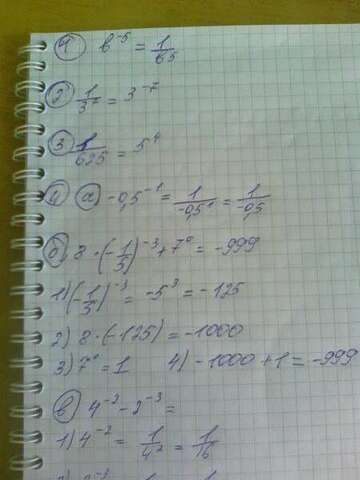 1 b⁻⁵ = 1/b5
2 1/3⁷ = 3⁻⁷
3 1/625 = 5⁴
4 а) -0,5⁻¹ = 1/-0,5¹ = 1/-0,5
б) 8 · (-1/5)⁻³ + 7⁰ = -999
1) (-1/5)⁻³ = -5³ = -125
2) 8 · (-125) = -1000
3) 7⁰ = 1 4) -1000 + 1 = -999
в) 4⁻² - 2⁻³ =
1) 4⁻² = 1/4² = 1/16